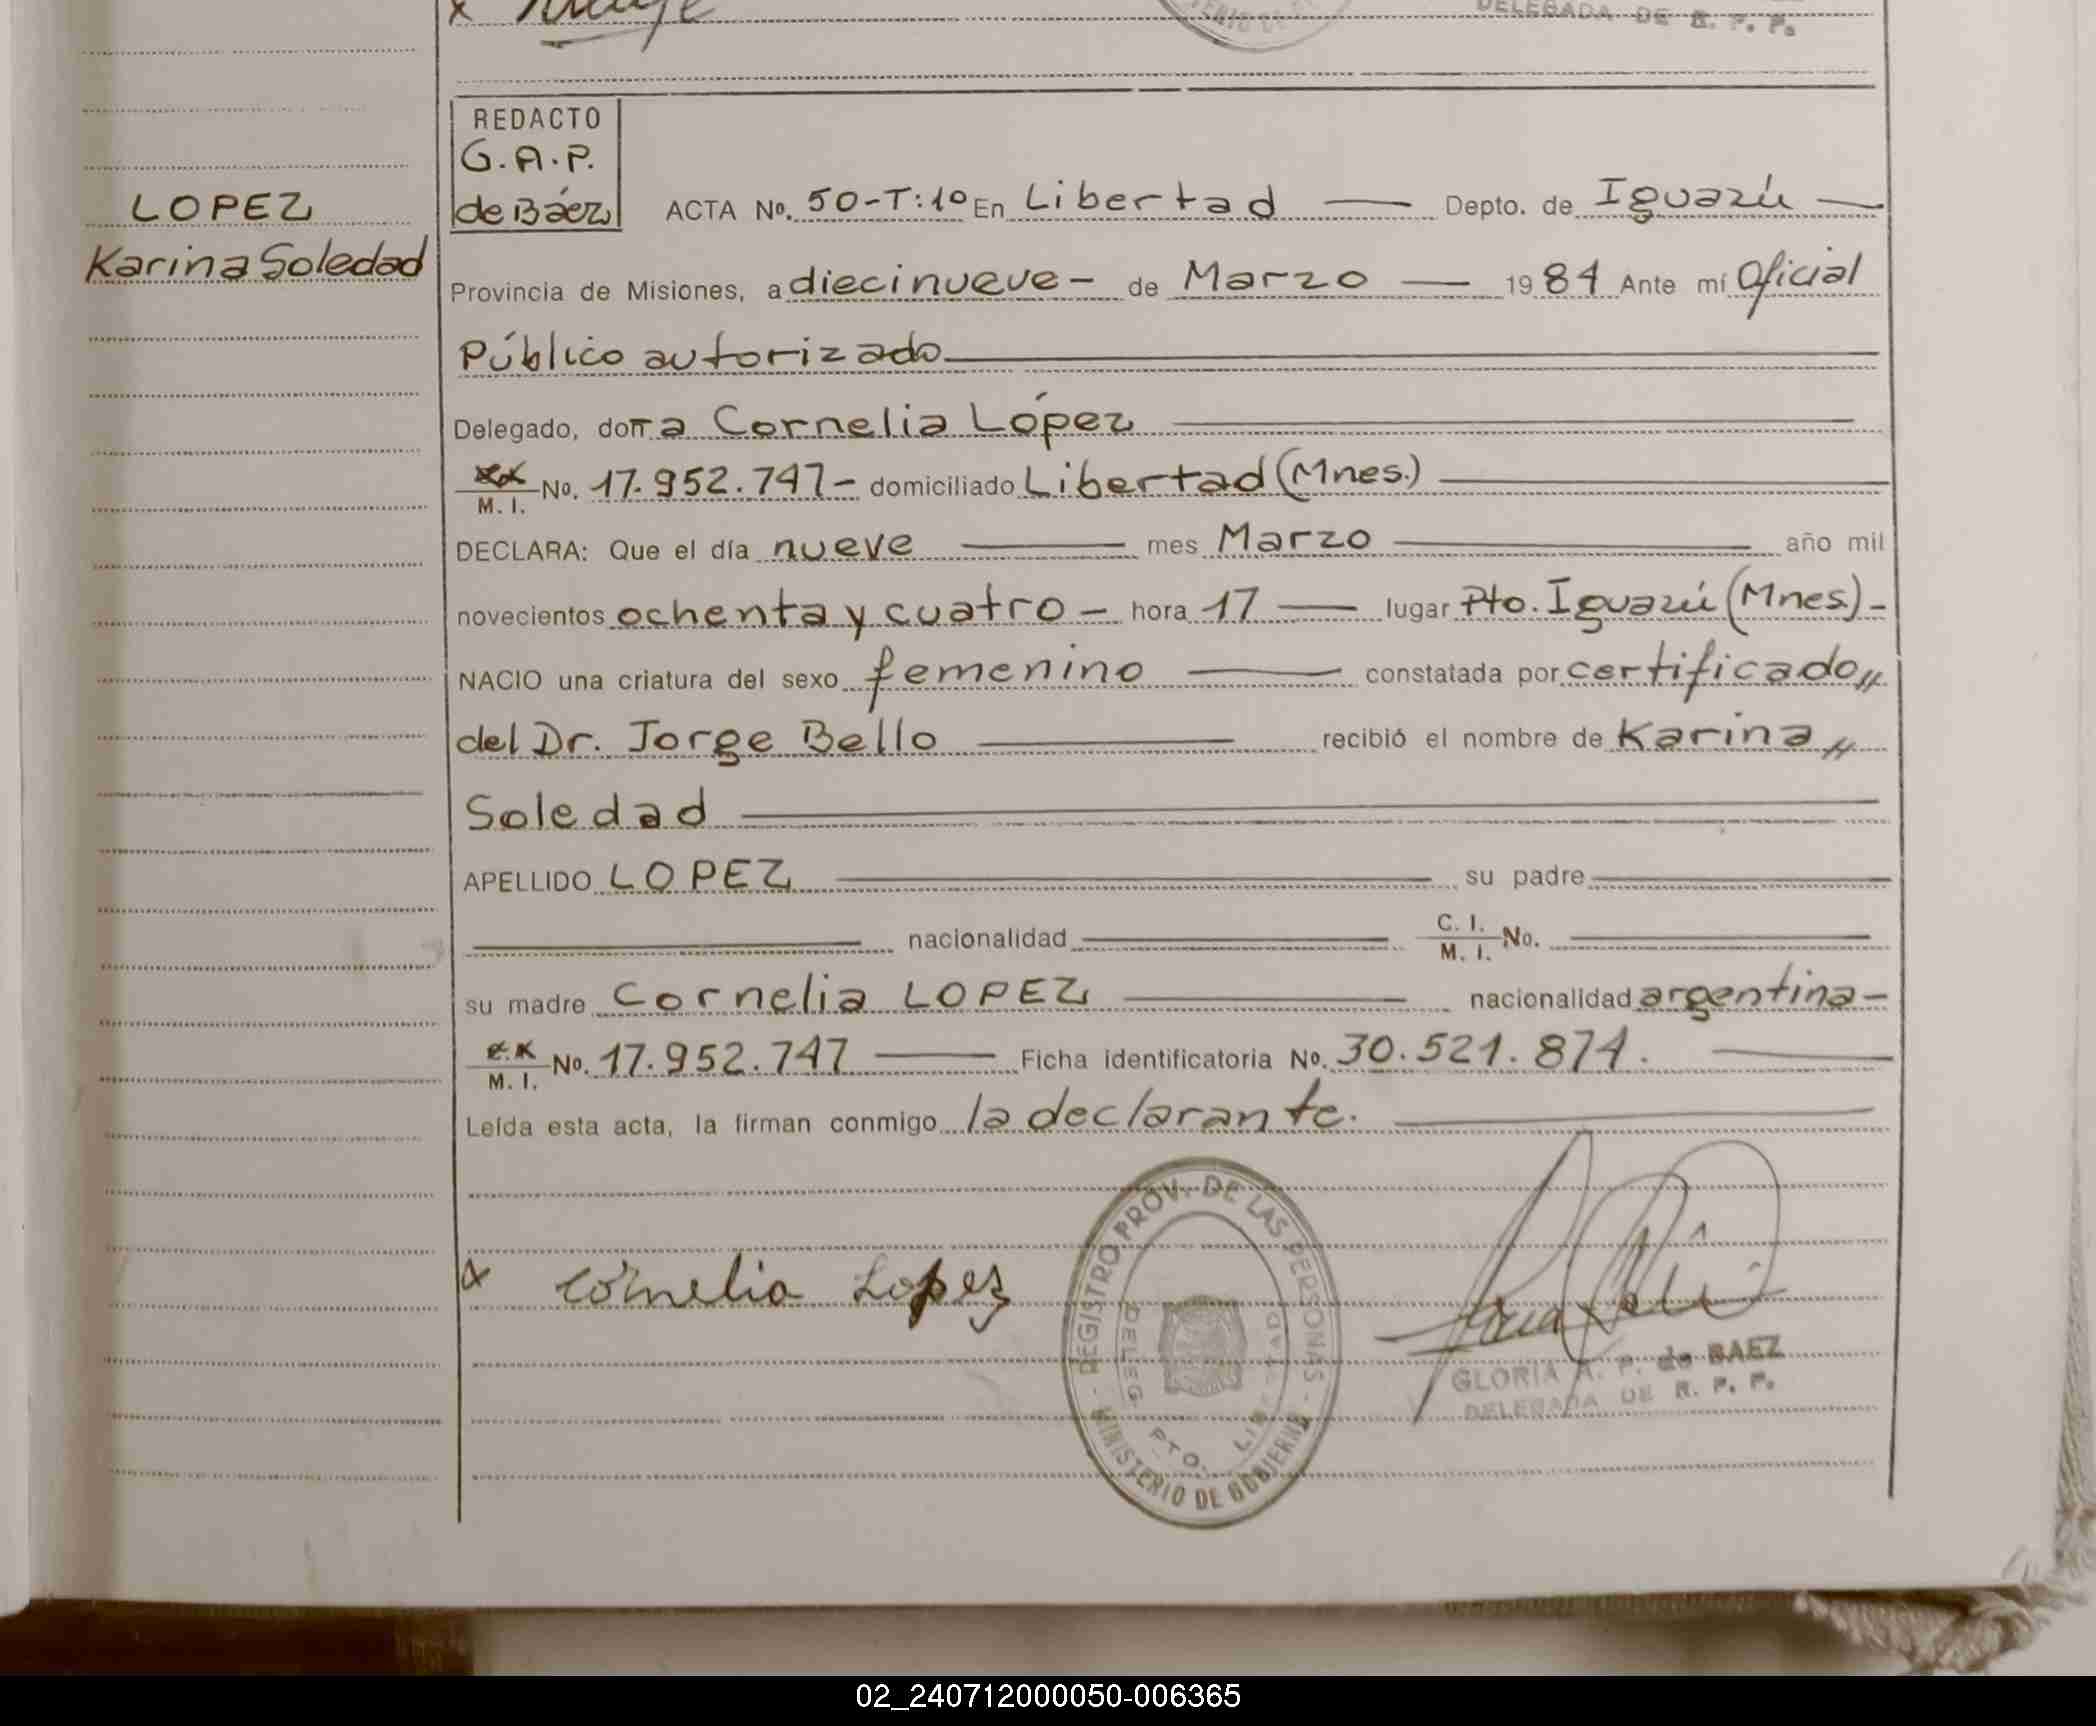 DELEGADA DE R. P. P.
REDACTO
G.A.P.
de Báez
LOPEZ
Karina Soledad
ACTA No. 50-T:1º En Libertad — Depto. de Iguazú —
Provincia de Misiones, a diecinueve - de Marzo — 1984 Ante mí Oficial
Público autorizado
Delegado, doña Cornelia López
M. I. No. 17.952.747 - domiciliado Libertad (Mnes.)
DECLARA: Que el día nueve — mes Marzo — año mil
novecientos ochenta y cuatro - hora 17 — lugar Pto. Iguazú (Mnes.) -
NACIO una criatura del sexo femenino — constatada por certificado,,
del Dr. Jorge Bello — recibió el nombre de Karina,,
Soledad
APELLIDO LOPEZ — su padre —
— nacionalidad — C. I. M. I. No. —
su madre Cornelia LOPEZ — nacionalidad argentina -
M. I. No. 17.952.747 — Ficha identificatoria No. 30.521.874. —
Leída esta acta, la firman conmigo la declarante.
x Cornelia Lopez
REGISTRO PROV. DE LAS PERSONAS
DELEG. PTO. LIBERTAD
MINISTERIO DE GOBIERNO
GLORIA A. P. de BAEZ
DELEGADA DE R. P. P.
02_240712000050-006365